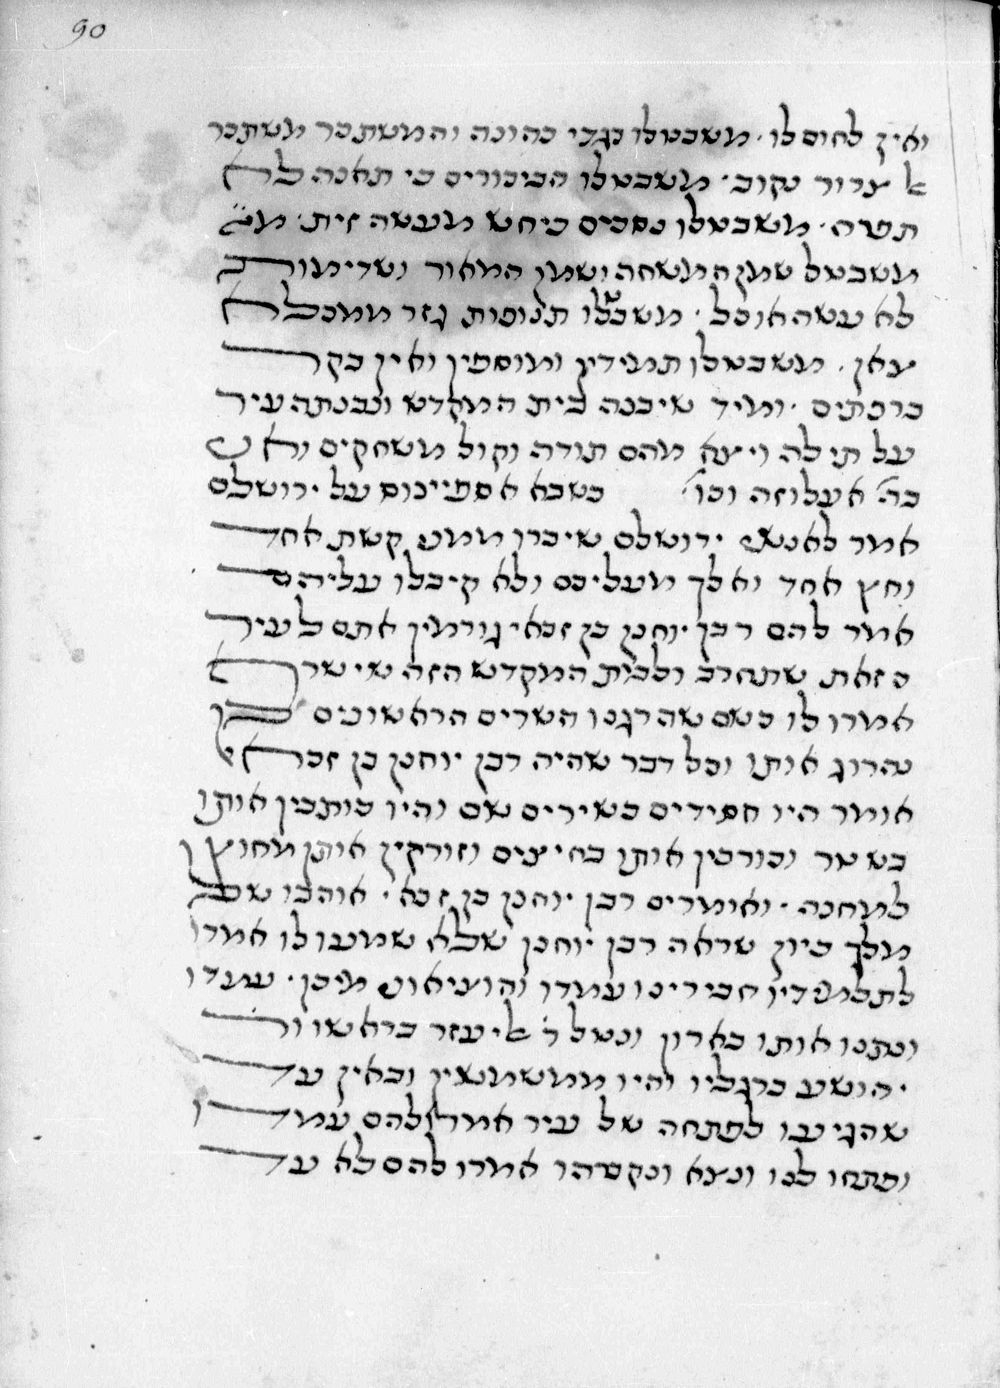 90
ואין לחום לו · משבטלו בגדי כהונה והמשתכר משתכר
אל צרור נקוב · משבטלו הביכורים כי תאנה לא
תפרה · משבטלו נסכים כיחש מעשה זית · מש
משבטל שמן המשחה ושמן המאור ושדימות
לא עשה אוכל · משבטלו תנופות גזר ממכלא
צאן · משבטלו תמידין ומוספין ואין בקר
ברפתים · ומיד שיבנה בית המקדש ונבנתה עיר
על תילה ויצא מהם תודה וקול משחקים וא
כה אעלוזה וכו' כשבא אספיינוס על ירושלם
אמר לאנשי ירושלם שיברו ממני קשת אחד
וחץ אחד ואלך מעליכם ולא קיבלו עליהם
אמר להם רבן יוחנן בן זכאי גורמין אתם לעיר
הזאת שתחרב ולבית המקדש הזה שישרף
אמרו לו כשם שהרגנו השרים הראשונים כך
נהרוג אותו וכל דבר שהיה רבן יוחנן בן זכאי
אומר היו חסידים כשירים שם והיו כותבין אותן
בשטר וכורכין אותן בחיצים וזורקין אותן מחוץ
למחנה · ואומרים רבן יוחנן בן זכא · אוהבו של
מלך כיון שראה רבן יוחנן שלא שמעו לו אמרו
לתלמידיו חבירינו עמדו והוציאוני מיכן · עמדו
ונתנו אותו בארון ונטל ר' אליעזר בראשו ור'
יהושע ברגליו והיו ממשמשין ובאין עד
שהגיעו לפתחה של עיר אמרו להם עמדו
ופתחו לנו ונצא ונקברהו אמרו להם לא עד